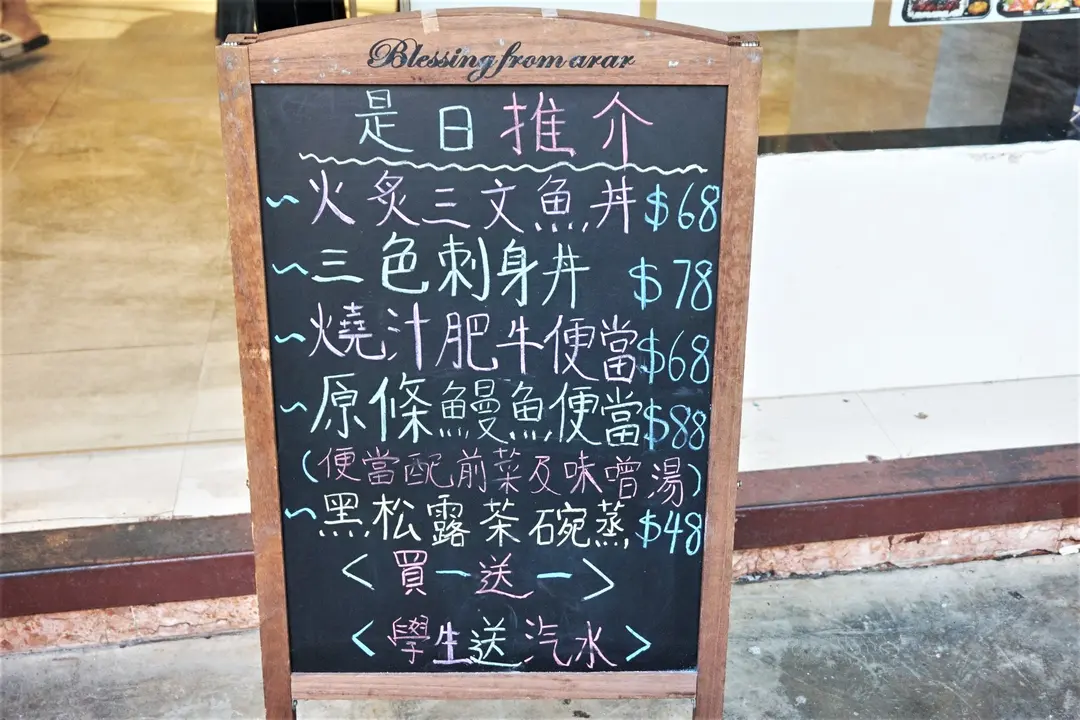 Blessing from arar
是日推介
~火炙三文魚丼$68
~三色刺身丼 $78
~燒汁肥牛便當$68
~原條鰻魚便當$88
(便當配前菜及味噌湯)
~黑松露茶碗蒸$48
<買一送一>
<學生送汽水>